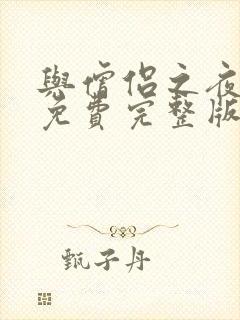 與僧侶之夜
免費完整版
甄子丹